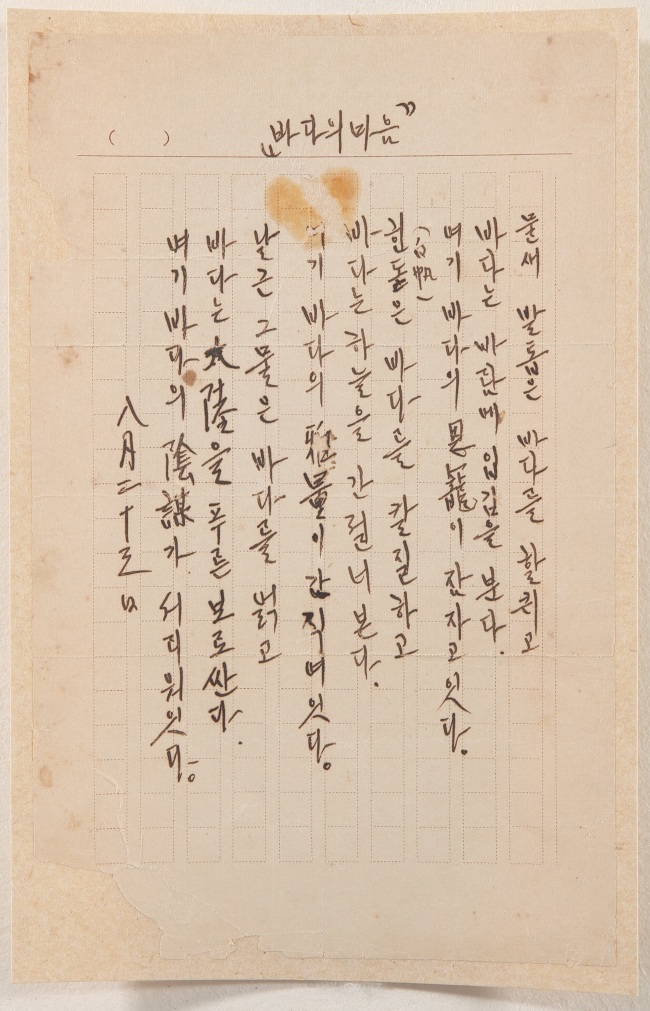 ( ) 『바다의마음』
물새 발톱은 바다를 할퀴고
바다는 바람에 입김을 분다.
여기 바다의 恩寵이 잠자고 잇다.
(白帆)
흰돛은 바다를 칼질하고
바다는 하늘을 간질너 본다.
여기 바다의 雅量이 간직여 잇다.
날근 그물은 바다를 얽고
바다는 大陸을 푸른 보로 싼다.
여기 바다의 陰謀가 서리워 잇다.
八月二十三日